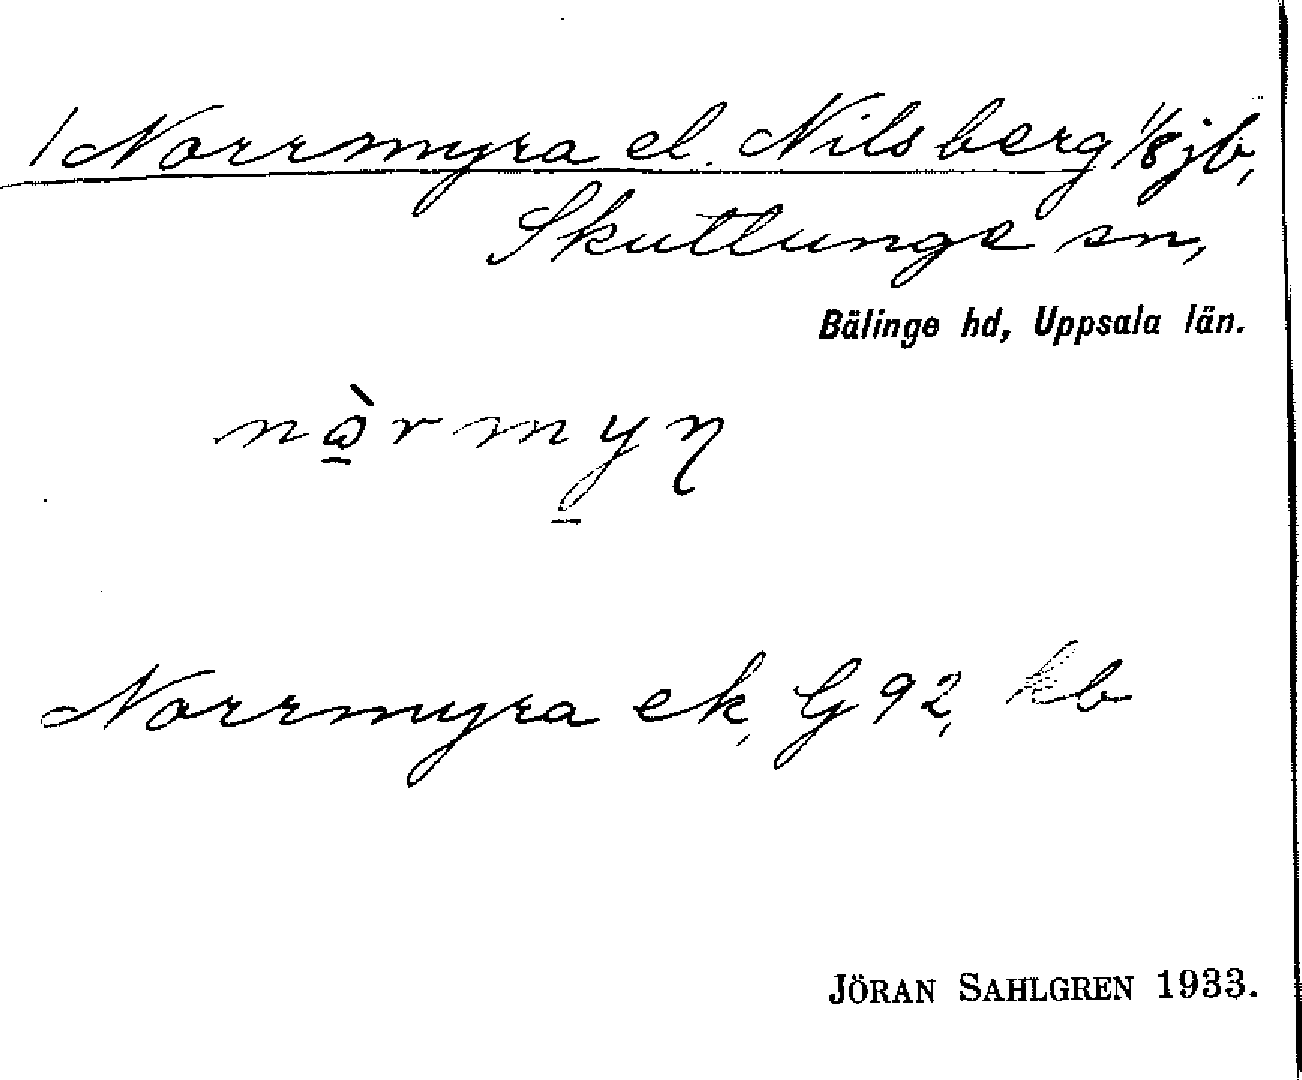 /Norrmyra el. Nilsberg 1/8 jb,
Skuttunge sn,
Bälinge hd, Uppsala län.
Norrmyra ek, G 92, kb
JÖRAN SAHLGREN 1933.